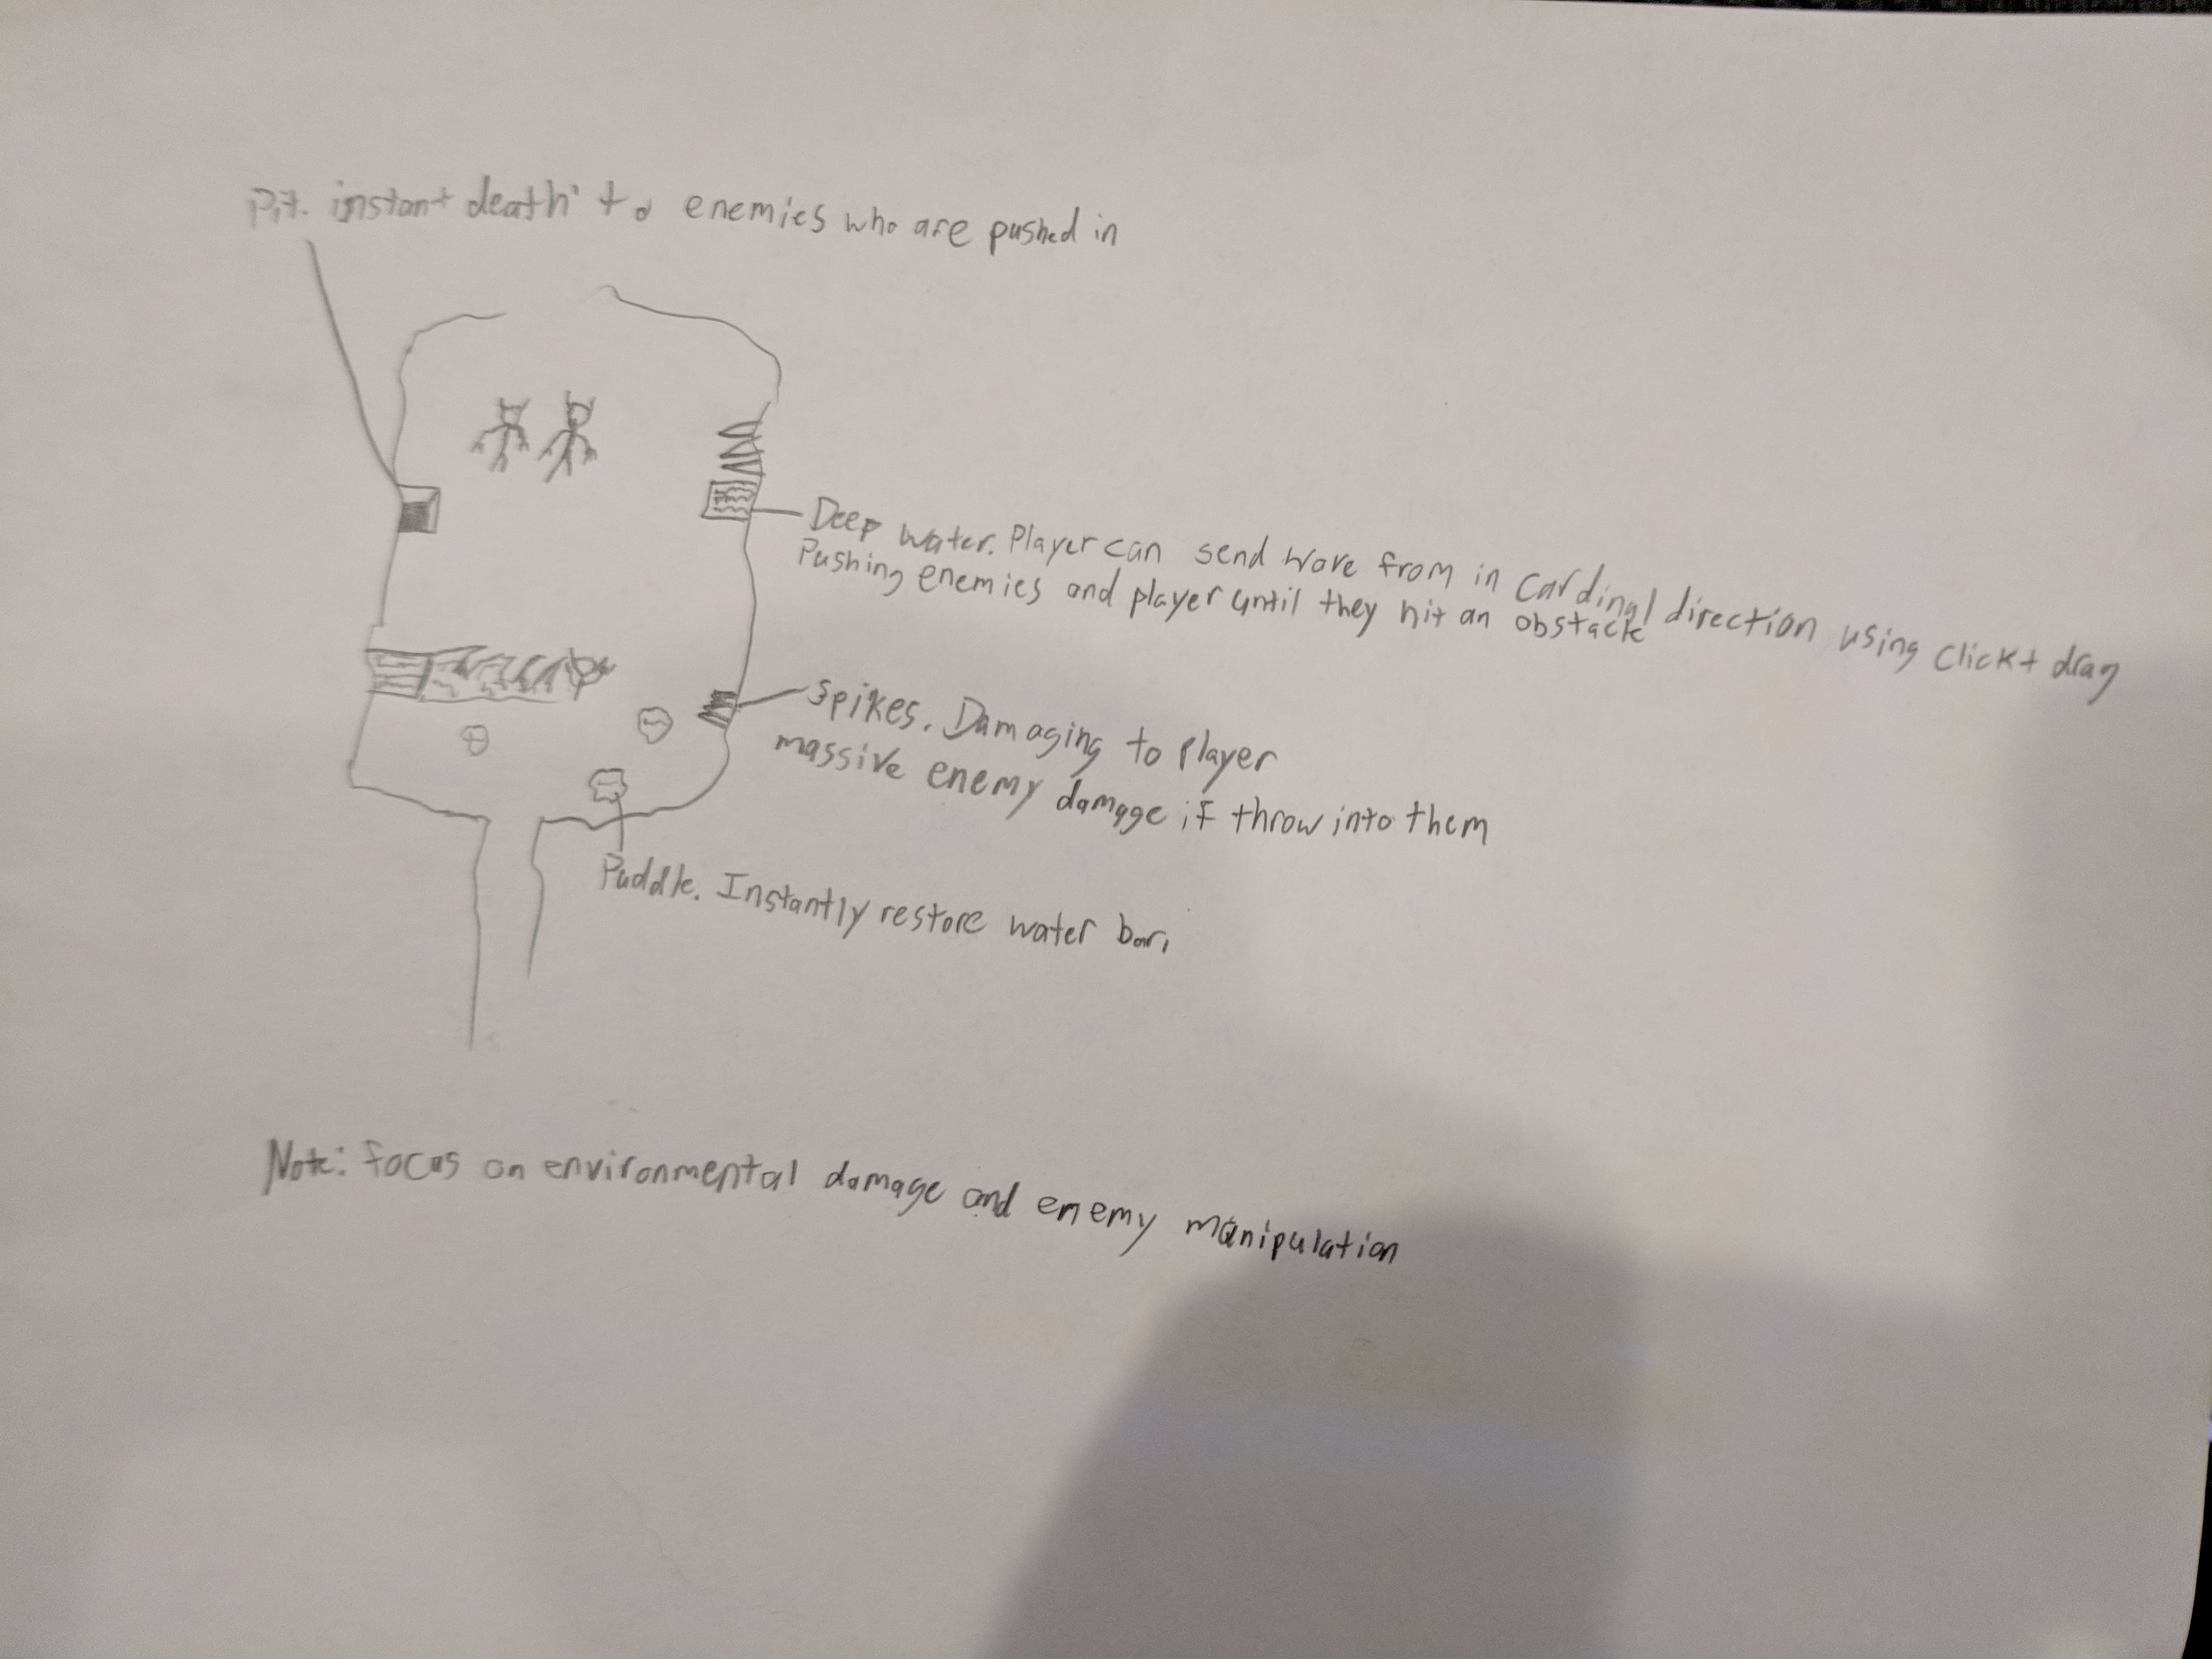 Pit. instant death to enemies who are pushed in
Deep water. Player can send wave from in Cardinal direction using Click + drag
Pushing enemies and player until they hit an obstack
Spikes. Damaging to Player
massive enemy damage if throw into them
Puddle. Instantly restore water bar.
Note: focus on environmental damage and enemy manipulation